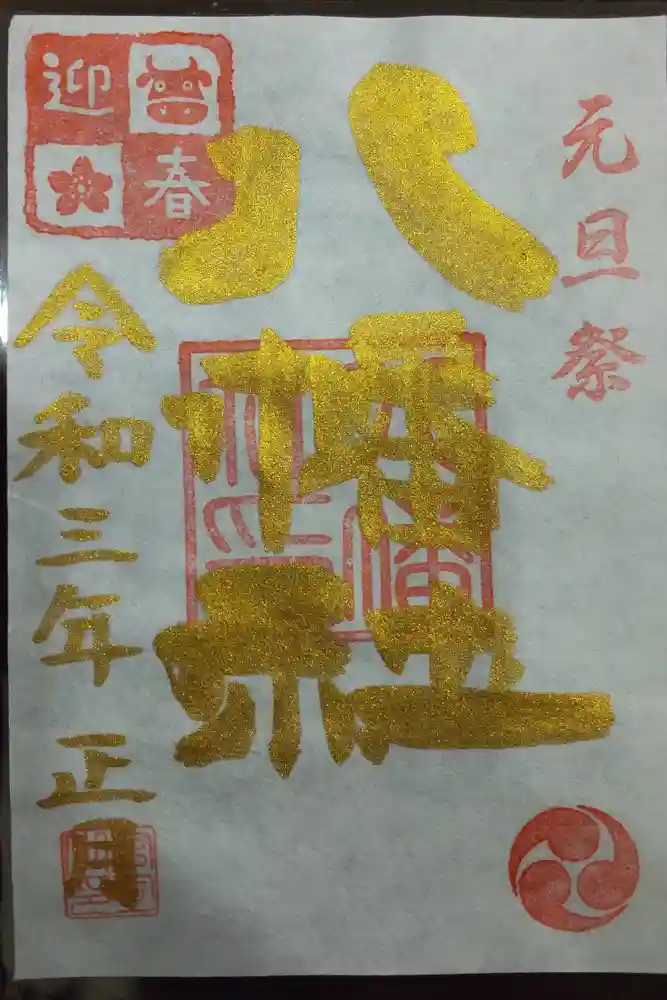 元旦祭
八幡社
迎春
令和三年 正月